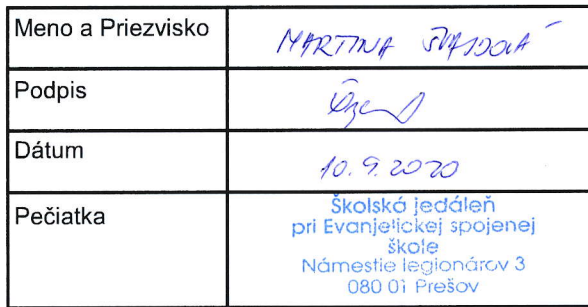 Meno a Priezvisko MARTINA
Podpis
Dátum 10.9.2020
Pečiatka
Školská jedáleň
pri Evanjelickej spojenej
škole
Námestie legionárov 3
080 01 Prešov